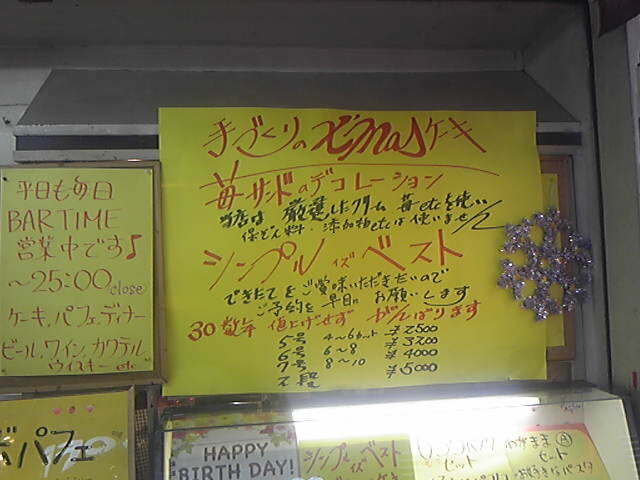 手づくりのX'masケーキ
苺サンドのデコレーション
当店は 厳選したクリーム 苺etcを使い
保ぞん料・添加物etcは使いませ
シンプル イズ ベスト
できたてをご賞味いただきたいので
ご予約を早目に お願いします
30数年 値上げせず がんばります
5号 4～6カット ¥2500
6号 6～8 ¥3200
7号 8～10 ¥4000
2段 ¥5000
平日も毎日
BARTIME
営業中です♪
～25:00 close
ケーキ、パフェ、ディナー
ビール、ワイン、カクテル
ウイスキー etc
パフェ
HAPPY
BIRTHDAY!
シンプル イズ ベスト
セット
わがまま Ⓐ
セット